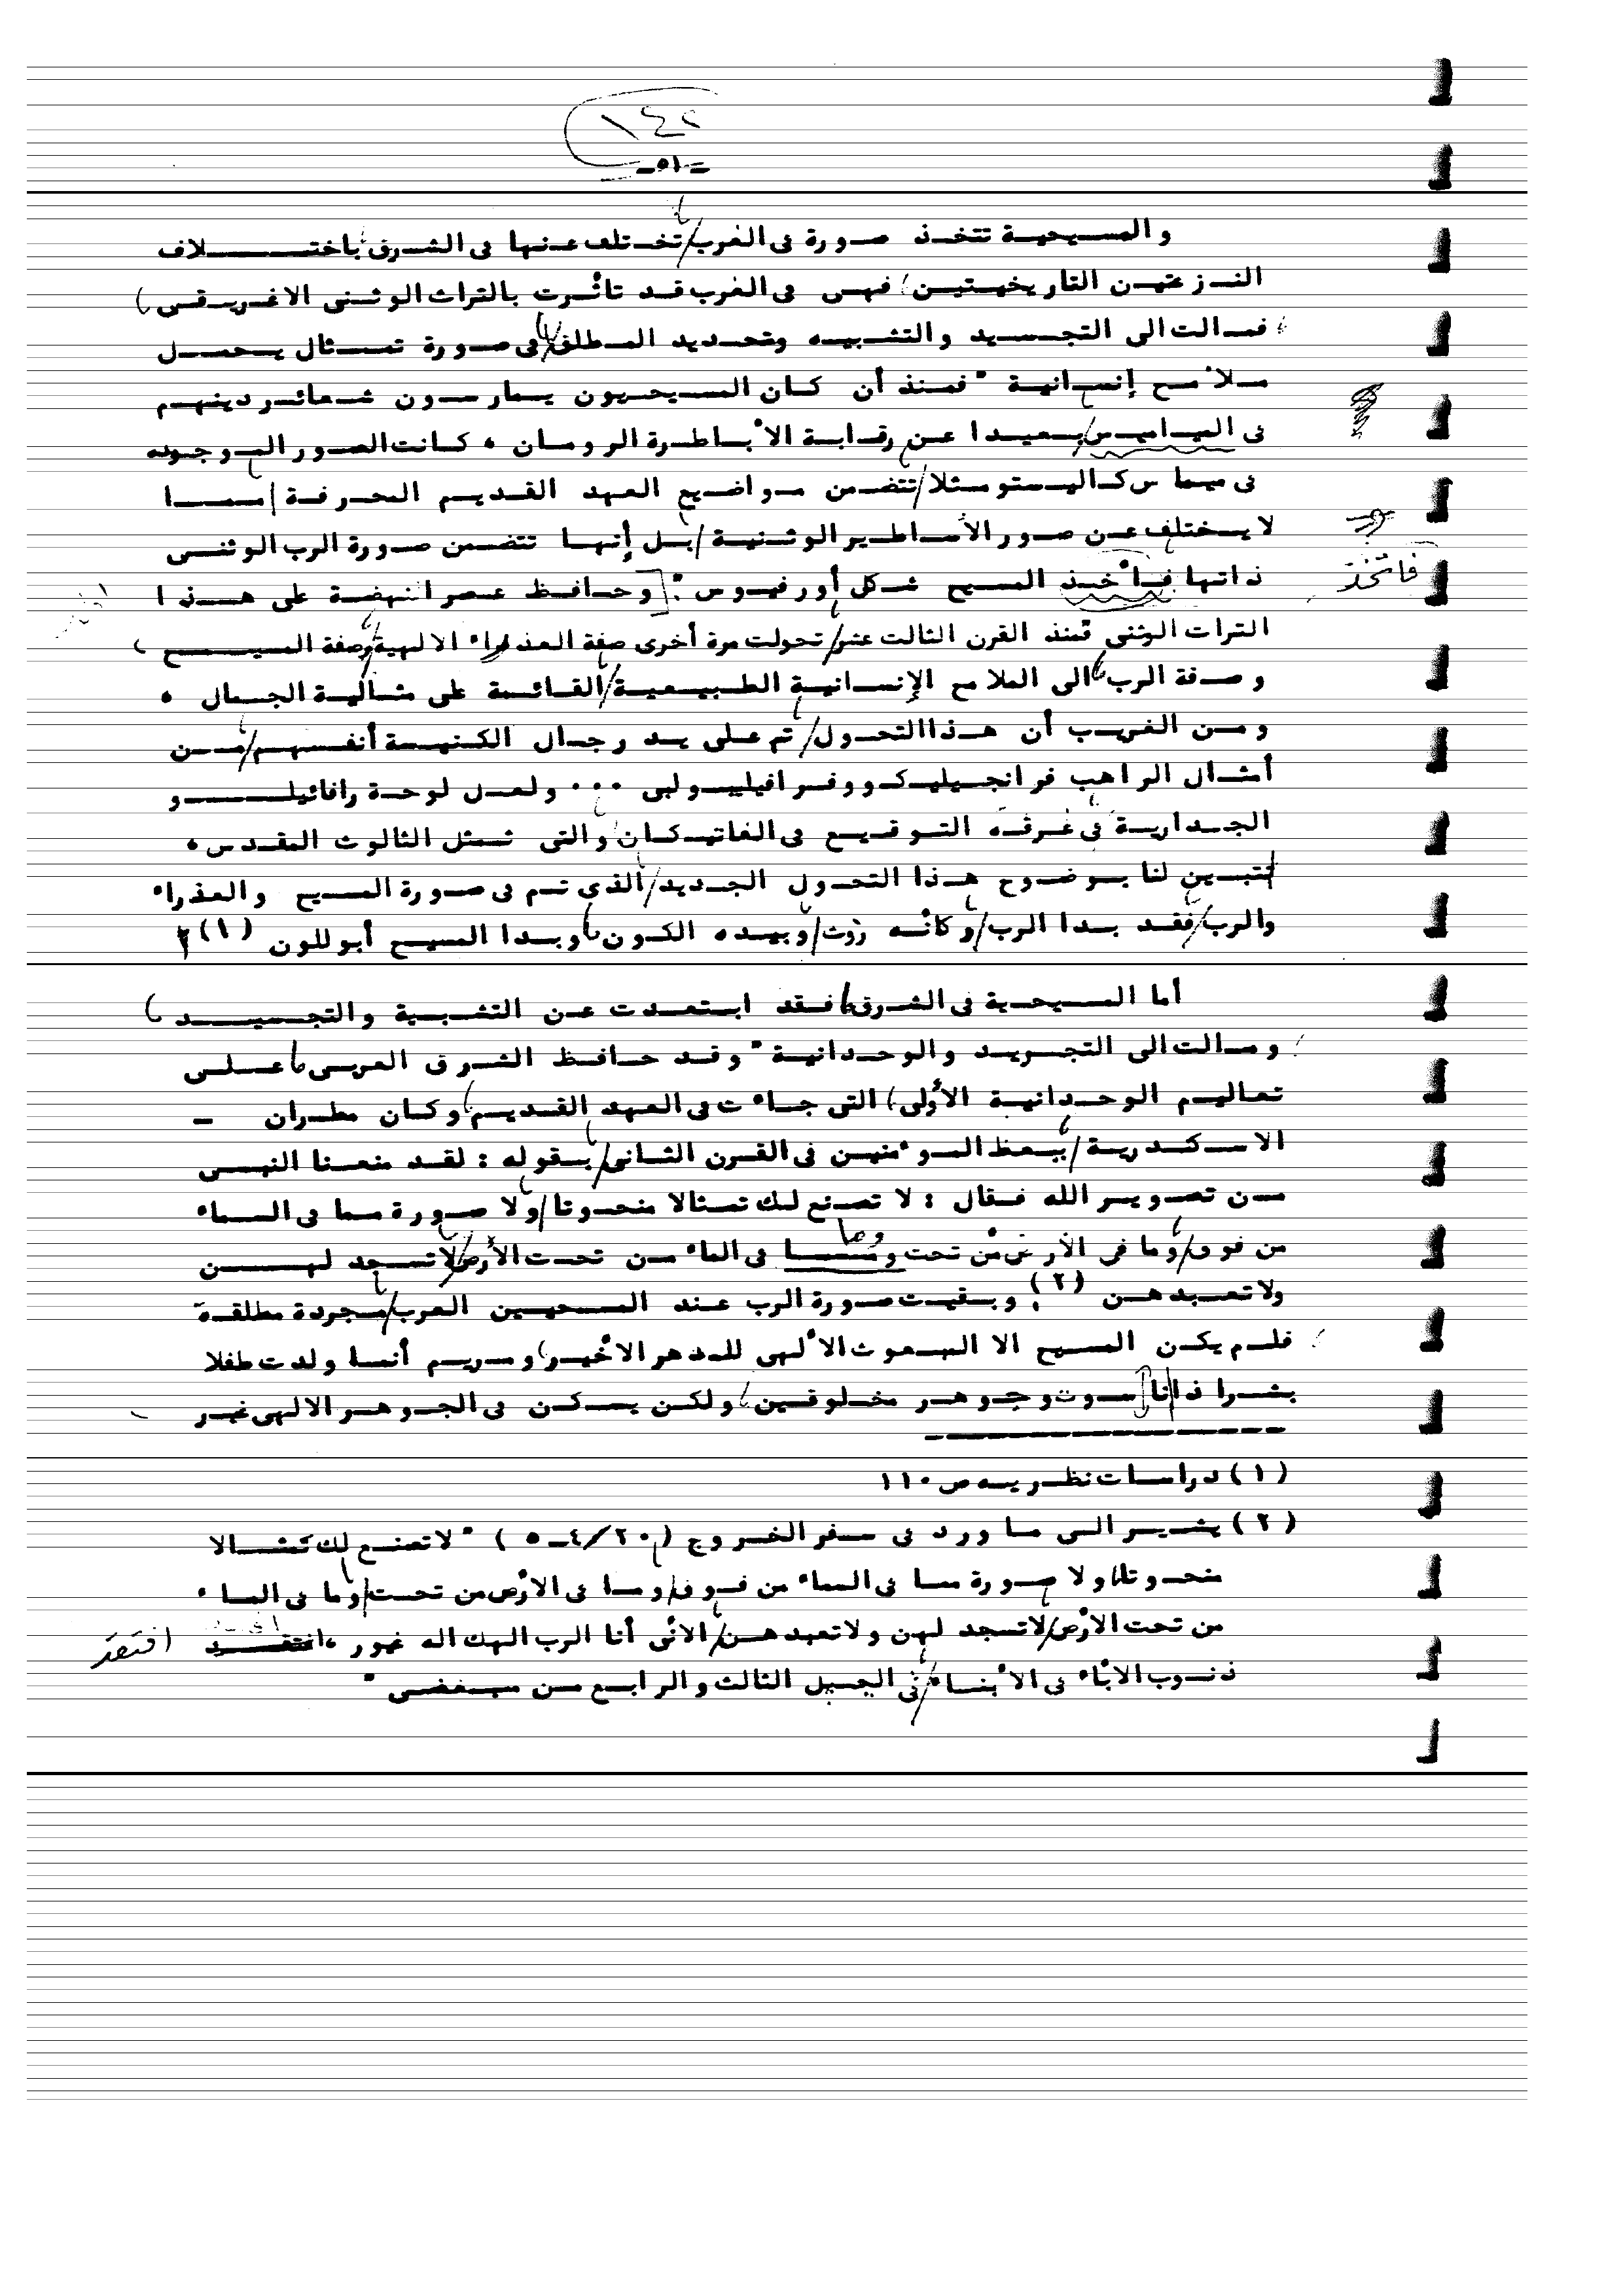 ١٤٢
-٥١-
والمسيحية تتخذ صورة فى الغرب/ تختلف عنها فى الشرق باختلاف
النزعتين التاريخيتين، فهى فى الغرب قد تأثرت بالتراث الوثنى الاغريقى،
فمالت الى التجسيد والتشبيه وتحديد المطلق فى صورة تمثال يحمل
ملامح إنسانية " فمنذ أن كان المسيحيون يمارسون شعائر دينهم
فى الدياميس/ بعيدا عن رقابة الأباطرة الرومان ، كانت الصور الموجوده
فى كاليستو مثلا/ تتضمن مواضيع العهد القديم المحرفة/ مما
لا يختلف عن صور الأساطير الوثنية/ بل إنها تتضمن صورة الرب الوثنى
ذاتها فأخذ المسيح شكل أورفيوس " [وحافظ عصر النهضة على هذا
فاتخذ
التراث الوثنى فمنذ القرن الثالث عشر/ تحولت مرة أخرى صفة العذراء الالهية/ وصفة المسيح،
وصفة الرب، الى الملامح الإنسانية الطبيعية/ القائمة على مثالية الجمال ،
ومن الغريب أن هذا التحول/ تم على يد رجال الكنيسة أنفسهم/ من
أمثال الراهب فرانجيليكو وفرافيليبو لبى ... ولعل لوحة رافائيلو
الجدارية فى غرفة التوقيع فى الفاتيكان والتى تمثل الثالوث المقدس ،
لتبين لنا بوضوح هذا التحول الجديد/ الذى تم فى صورة المسيح والعذراء
والرب/ فقد بدا الرب/ وكأنه زوث/ وبيده الكون، وبدا المسيح أبوللون (١)
أما المسيحية فى الشرق، فقد ابتعدت عن التشبية والتجسيد،
ومالت الى التجريد والوحدانية " وقد حافظ الشرق العربى، على
تعاليم الوحدانية الأولى، التى جاءت فى العهد القديم، وكان مطران -
الاسكدرية/ يعظ المؤمنين فى القرن الثانى/ بقوله : لقد منعنا النبى
من تصوير الله فقال : لا تصنع لك تمثالا منحوتا/ ولا صورة مما فى السماء
من فوق/ وما فى الأرض من تحت ومما فى الماء من تحت الأرض/ لا تسجد لهن
وما
ولا تعبد هن (٢) وبقيت صورة الرب عند المسحيين العرب/ مجردة مطلقة
فلم يكن المسيح الا المبعوث الألهى للدهر الأخير، ومريم أنما ولدت طفلا
بشرا ذا ناسوت وجوهر مخلوقين، ولكن يسكن فى الجوهر الالهى غير
(١) دراسات نظريه ص ١١٠
(٢) يشير الى ما ورد فى سفر الخروج (٢٠/٤-٥) " لا تصنع لك تمثالا
منحوتا، ولا صورة مما فى السماء من فوق/ وما فى الأرض من تحت/ وما فى الماء
من تحت الأرض/ لا تسجد لهن ولا تعبد هن/ لانى أنا الرب الهك اله غيور ، افتقد
افتقد
ذنوب الاباء فى الابناء/ فى الجيل الثالث والرابع من مبغضى "